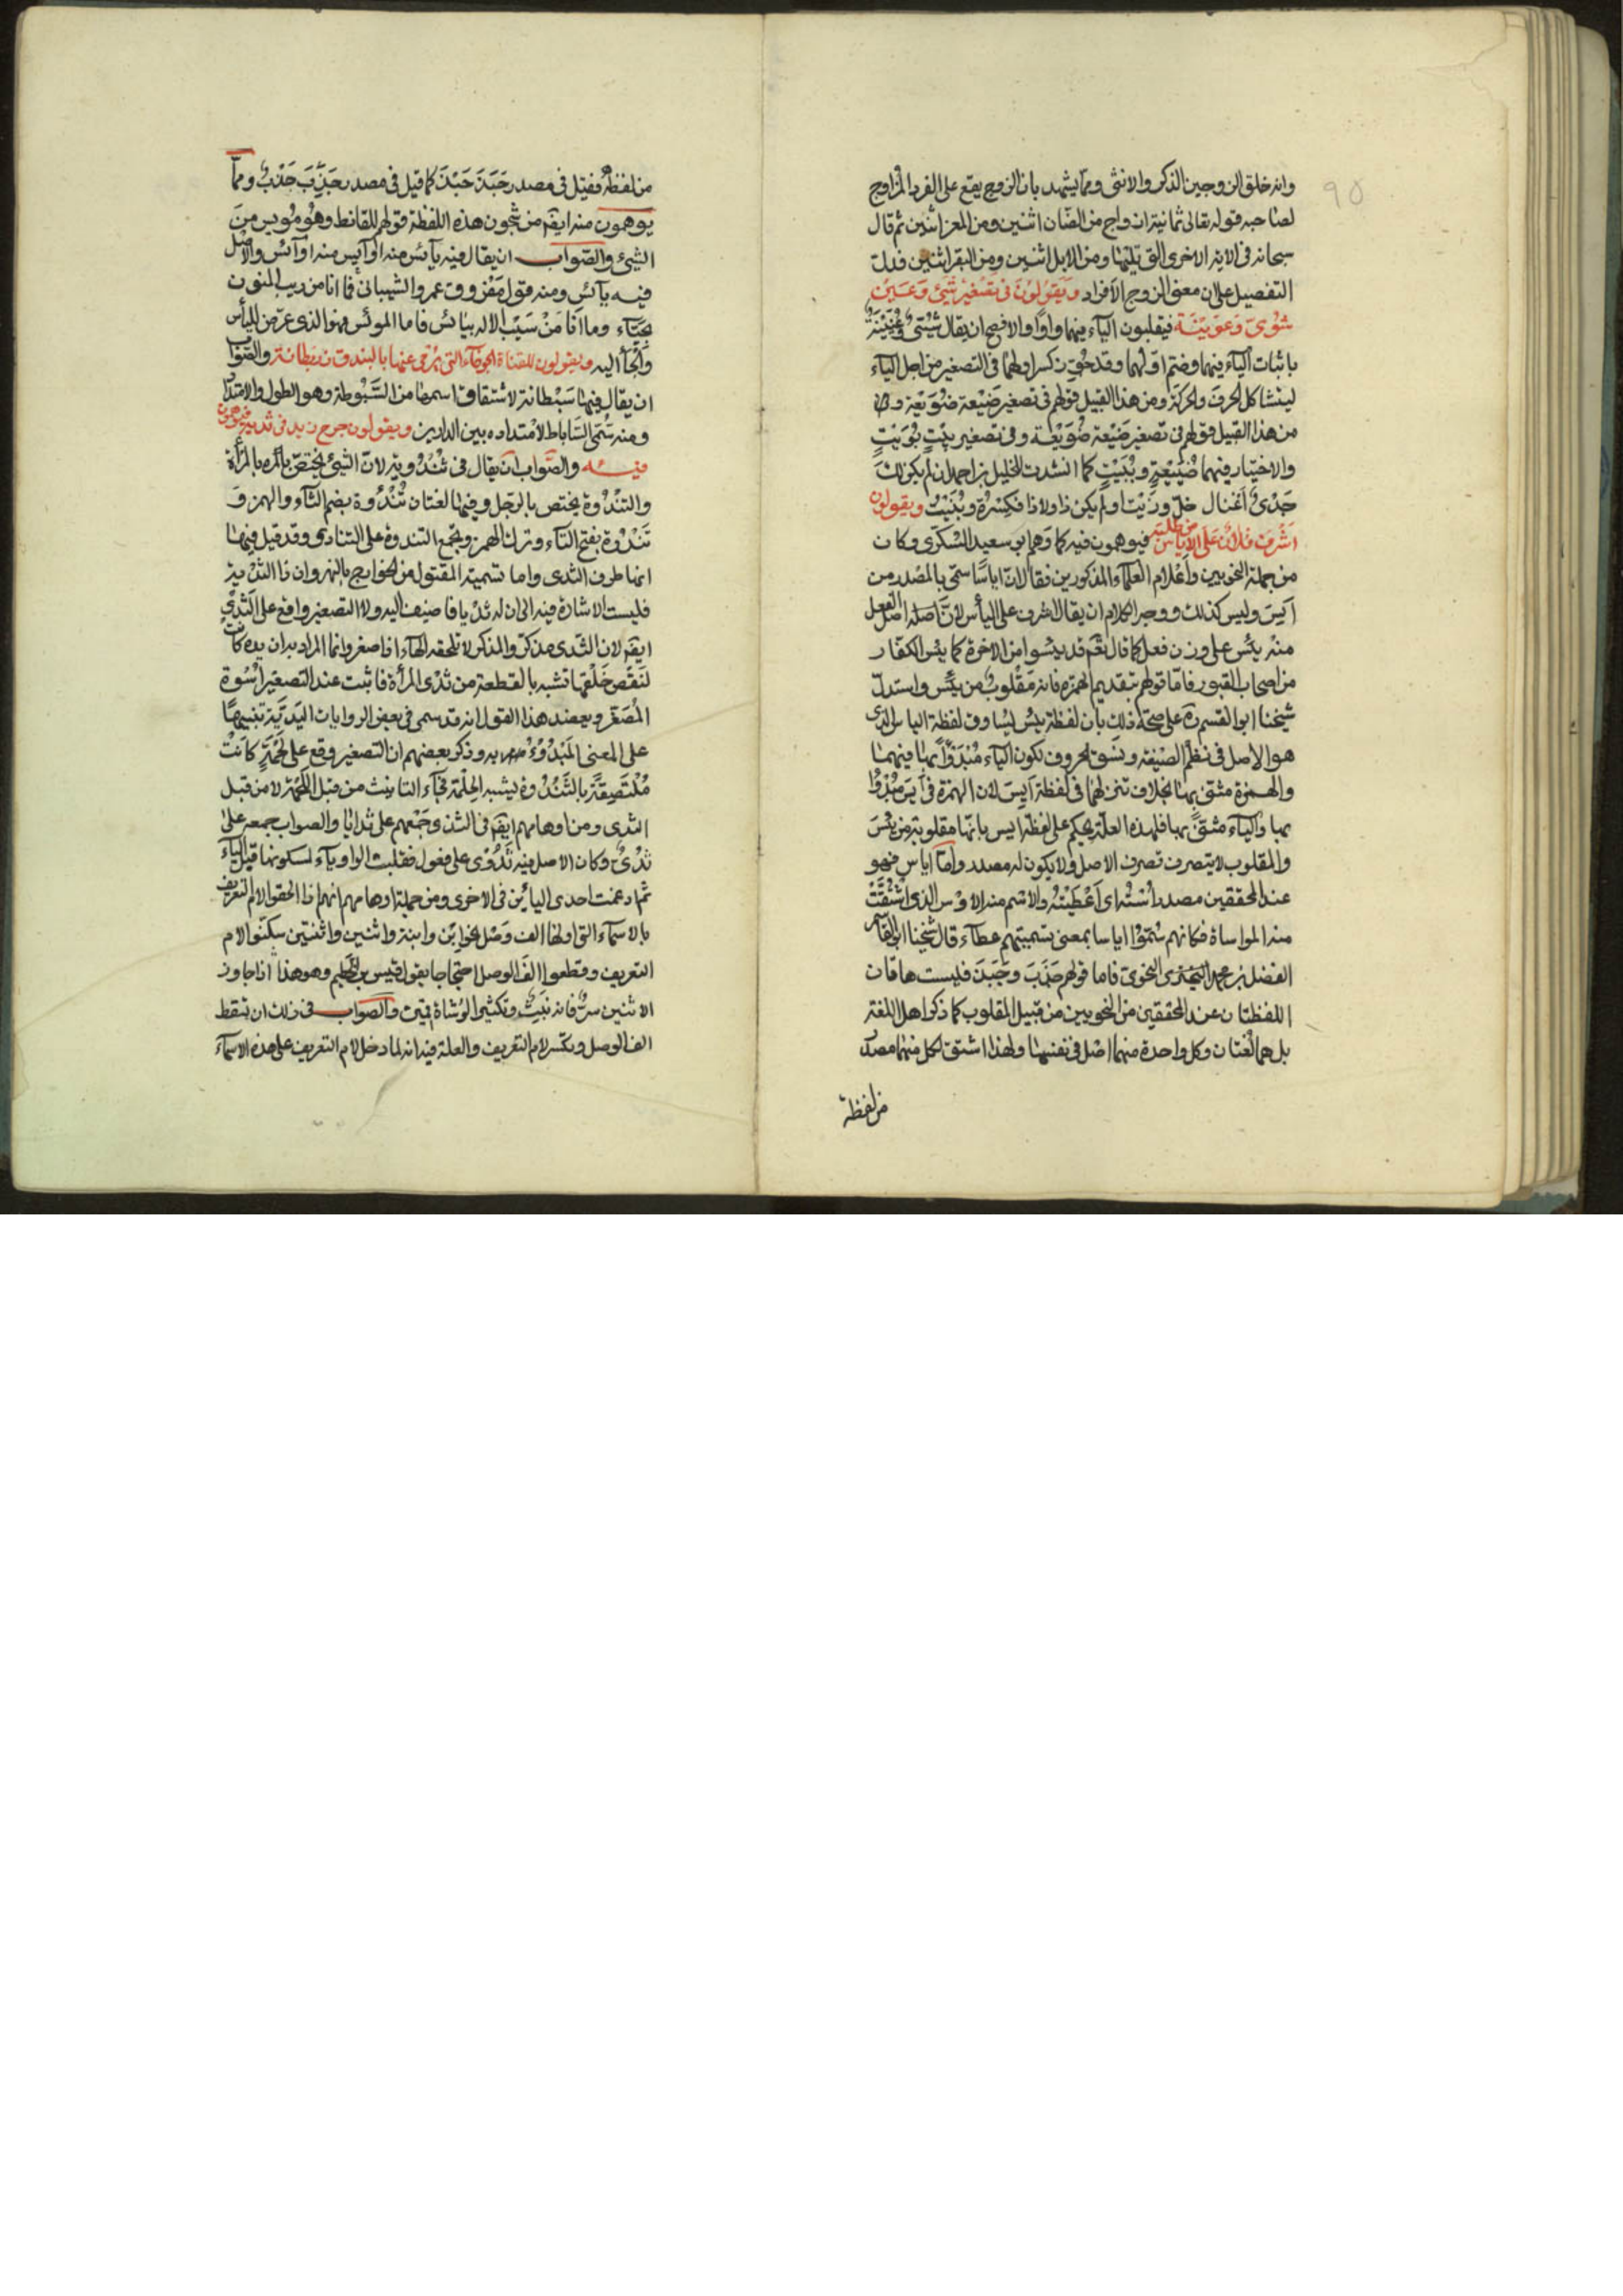 وانه خلق الزوجين الذكر والانثى ومما يشهد بان الزوج يقع على الفرد المزاوج
لصاحبه قوله تعالى ثمانية ازواج من الضان اثنين ومن المعز اثنين ثم قال
سبحانه فى الاية الاخرى التى تليها ومن الابل اثنين ومن البقر اثنين فدلت
التفصيل على ان معنى الزوج الافراد ويقولون فى تصغير شَيْئ وعَيْن
شوىّ وعوينة فيقلبون الياء فيهما واوًا والافصح ان يقال شُيَيْئ وعُيَيْنَة
باثبات الياء فيهما وضم اولهما وقد جُوّز كسر اولهما فى التصغير من اجل الياء
ليتشاكل الحرف والحركة ومن هذا القبيل قولهم فى تصغير ضَيْعة ضُوَيْعة و
من هذا القبيل قولهم فى تصغير ضَيْعة ضُوَيْعة وفى تصغير بيتٍ بُوَيْتٍ
والاختيار فيهما ضُيَيْعةٍ وبُيَيْتٍ كما انشدت للخليل بن احمد ان لم يكن لكَ
جَدْىٌ اغنال خلّ وزَيْت او لم يكن ذا ولا ذا فكِسْرَةٌ وبُيَيْتٌ ويقولون
اشرف فلان على الاياس من طلبته فيوهمون فيه كما وهم ابو سعيد السكرى وكان
من جملة النحويين واعلام العلماء المذكورين فقال ان اياسًا سمّى بالمصدر من
آيس وليس كذلك ووجه الكلام ان يقال اشرف على اليأس لانّ اصله اصل الفعل
منه يئس على وزن فعل كما قال تعم قد يئسوا من الاخرة كما يئس الكفار
من اصحاب القبور فامّا قولهم بتقديم الهمزة فانه مقلوبٌ من يئس واستدلّ
شيخنا ابو القسم ره على صحة ذلك بان لفظة يئس تساوق لفظة الياس الذى
هو الاصل فى نظم الصيغة ونسق الحروف لكون الياء مُبْدَوًّا بها فيهما
والهمزة مثنّى بها بخلاف تنزلهما فى لفظة آيس لان الهمزة فى آيس مُبْدُوّا
بها والياء مثنًّى بها فلهذه العلة يحكم على لفظة ايس بانّها مقلوبة من يئسَ
والمقلوب لا يتصرف تصرف الاصل ولا يكون له مصدر وامّا اياس فهو
عند المحققين مصدر اُسْتُه اى اَعْطَيْتُهُ والاسم منه الاوْس الذى اشتُقّتْ
منه المواساة فكانهم سَمَّوْا اياسا بمعنى تسميتهم عطآء قال شيخنا ابو القاسم
الفضل بن محمد النحوى فاما قولهم جَذَبَ وجَبَذَ فليست هاتان
اللفظتان عند المحققين من النحويين من قبيل المقلوب كما ذكر اهل اللغة
بل هما لُغتان وكل واحدة منهما اصْل فى نفسها ولهذا اشتق لكل منهما مصدر
من لفظه
من لفظه فقيل فى مصدر جَبَذَ جَبْذَ كما قيل فى مصدر جَذَبَ جَذْبٌ وممّا
يوهمون منه ايضَ من شجون هذه اللفظة قولهم للقانط وهُو مُويس من
الشئ والصّواب ان يقال فيه يآئس منه او آيس منه او آئس والاصْل
فيه يآئس ومنه قول مفروق عمرو الشيبانى فما انا من ريب المنون
بجُبّاء وما انا مَنْ سَيْب الاله بيائس فاما الموئس فهو الذى عرّض لليأس
وألجأ اليه ويقولون للقناة الجوفآء التى يُرْمى عنها بالبندق زربطانة والصّوَاب
ان يقال فيها سَبْطانة لاشتقاق اسمها من السُّبُوطة وهو الطول والامتداد
ومنه سُمّى السَّاباط لامتداده بين الدارين ويقولون جرح زيد فى ثدييه فيوهمون
فيه والصّواب ان يقال فى ثَنْدُوَتِه لانّ الثدى يختصّ بالمرأة
والثندُوة يختص بالرجل وفيها لغتان ثُنْدُؤة بضم الثآء والهمز وَ
ثَنْدُوة بفتح الثآء وترك الهمز ويجمع الثندوة على الثنادى وقد قيل فيها
انها طرف الثدى واما تسمية المقتول من الخوارج بالنهروان ذا الثدية
فليست الاشارة فيه الى ان له ثديا فاضيف اليه ولا التصغير واقع على الثدىِ
ايضَ لان الثدى مذكّر والمذكر لا تلحقه الهآء اذا صغر وانما المراد به ان يده كانت
لنقص خلْقها تشبه بالقطعة من ثدْى المرأة فاثبت عند التصغير اُسْوة
المُصَغّر ويعضد هذا القول انه قد سمى فى بعض الروايات اليَديّة تنبيهًا
على المعنى المَبْدُوء به وذكر بعضهم ان التصغير وقع على لَحْمَةٍ كَانَتْ
مُلْتَصِقَةً بالثَّنْدُوة يشبه الحلمة فجآء التانيث من قبل اللَّحْمَة لا من قبل
الثدى ومن اوهامهم ايضَ فى الثدى جَمْعهم على ثدايا والصواب جمعه على
ثُدِىّ وكان الاصل فيه ثُدُوْى على فعول فقلبت الواو يآء لسكونها قبل الياء
ثم ادغمت احدى اليائين فى الاخرى ومن جملة اوهامهم انهم اذا الحقوا لام التعريف
بالاسمآء التى اولها الف وَصْل نحو ابن وابنة واثنين واثنتين سكّنوا لام
التعريف وقطعوا الفَ الوصل احتجاجا بقول قيس بن الخطيم وهو هذا اذا جاوز
الاثنين سرٌّ فانه بنَثٍّ وتكثير الوُشَاة قمين والصّواب فى ذلك ان تسقط
الف الوصل وتكسر لام التعريف والعلة فيه انه لما دخل لام التعريف على هذه الاسمآء